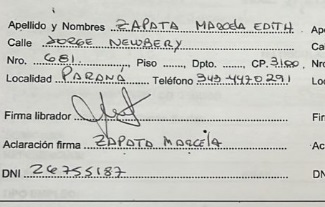 Apellido y Nombres ZAPATA MARCELA EDITH
Calle JORGE NEWBERY
Nro. 681 Piso ......, Dpto. ......, CP. 3100
Localidad PARANÁ Teléfono 343 4470291
Firma librador
Aclaración firma ZAPATA MARCELA
DNI 26755187